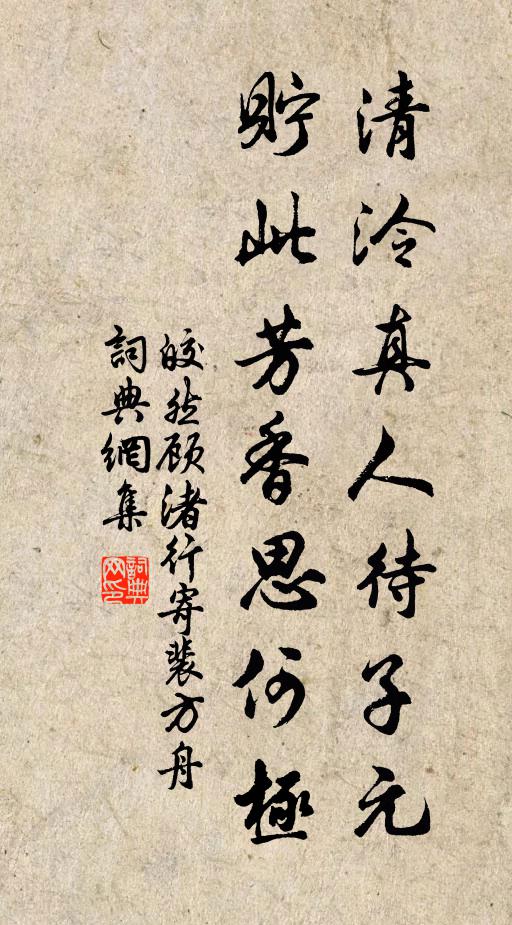 清泠真人待子元
貯此芳香思何極
皎然顾渚行寄裴方舟
詞典網集
詞典網印